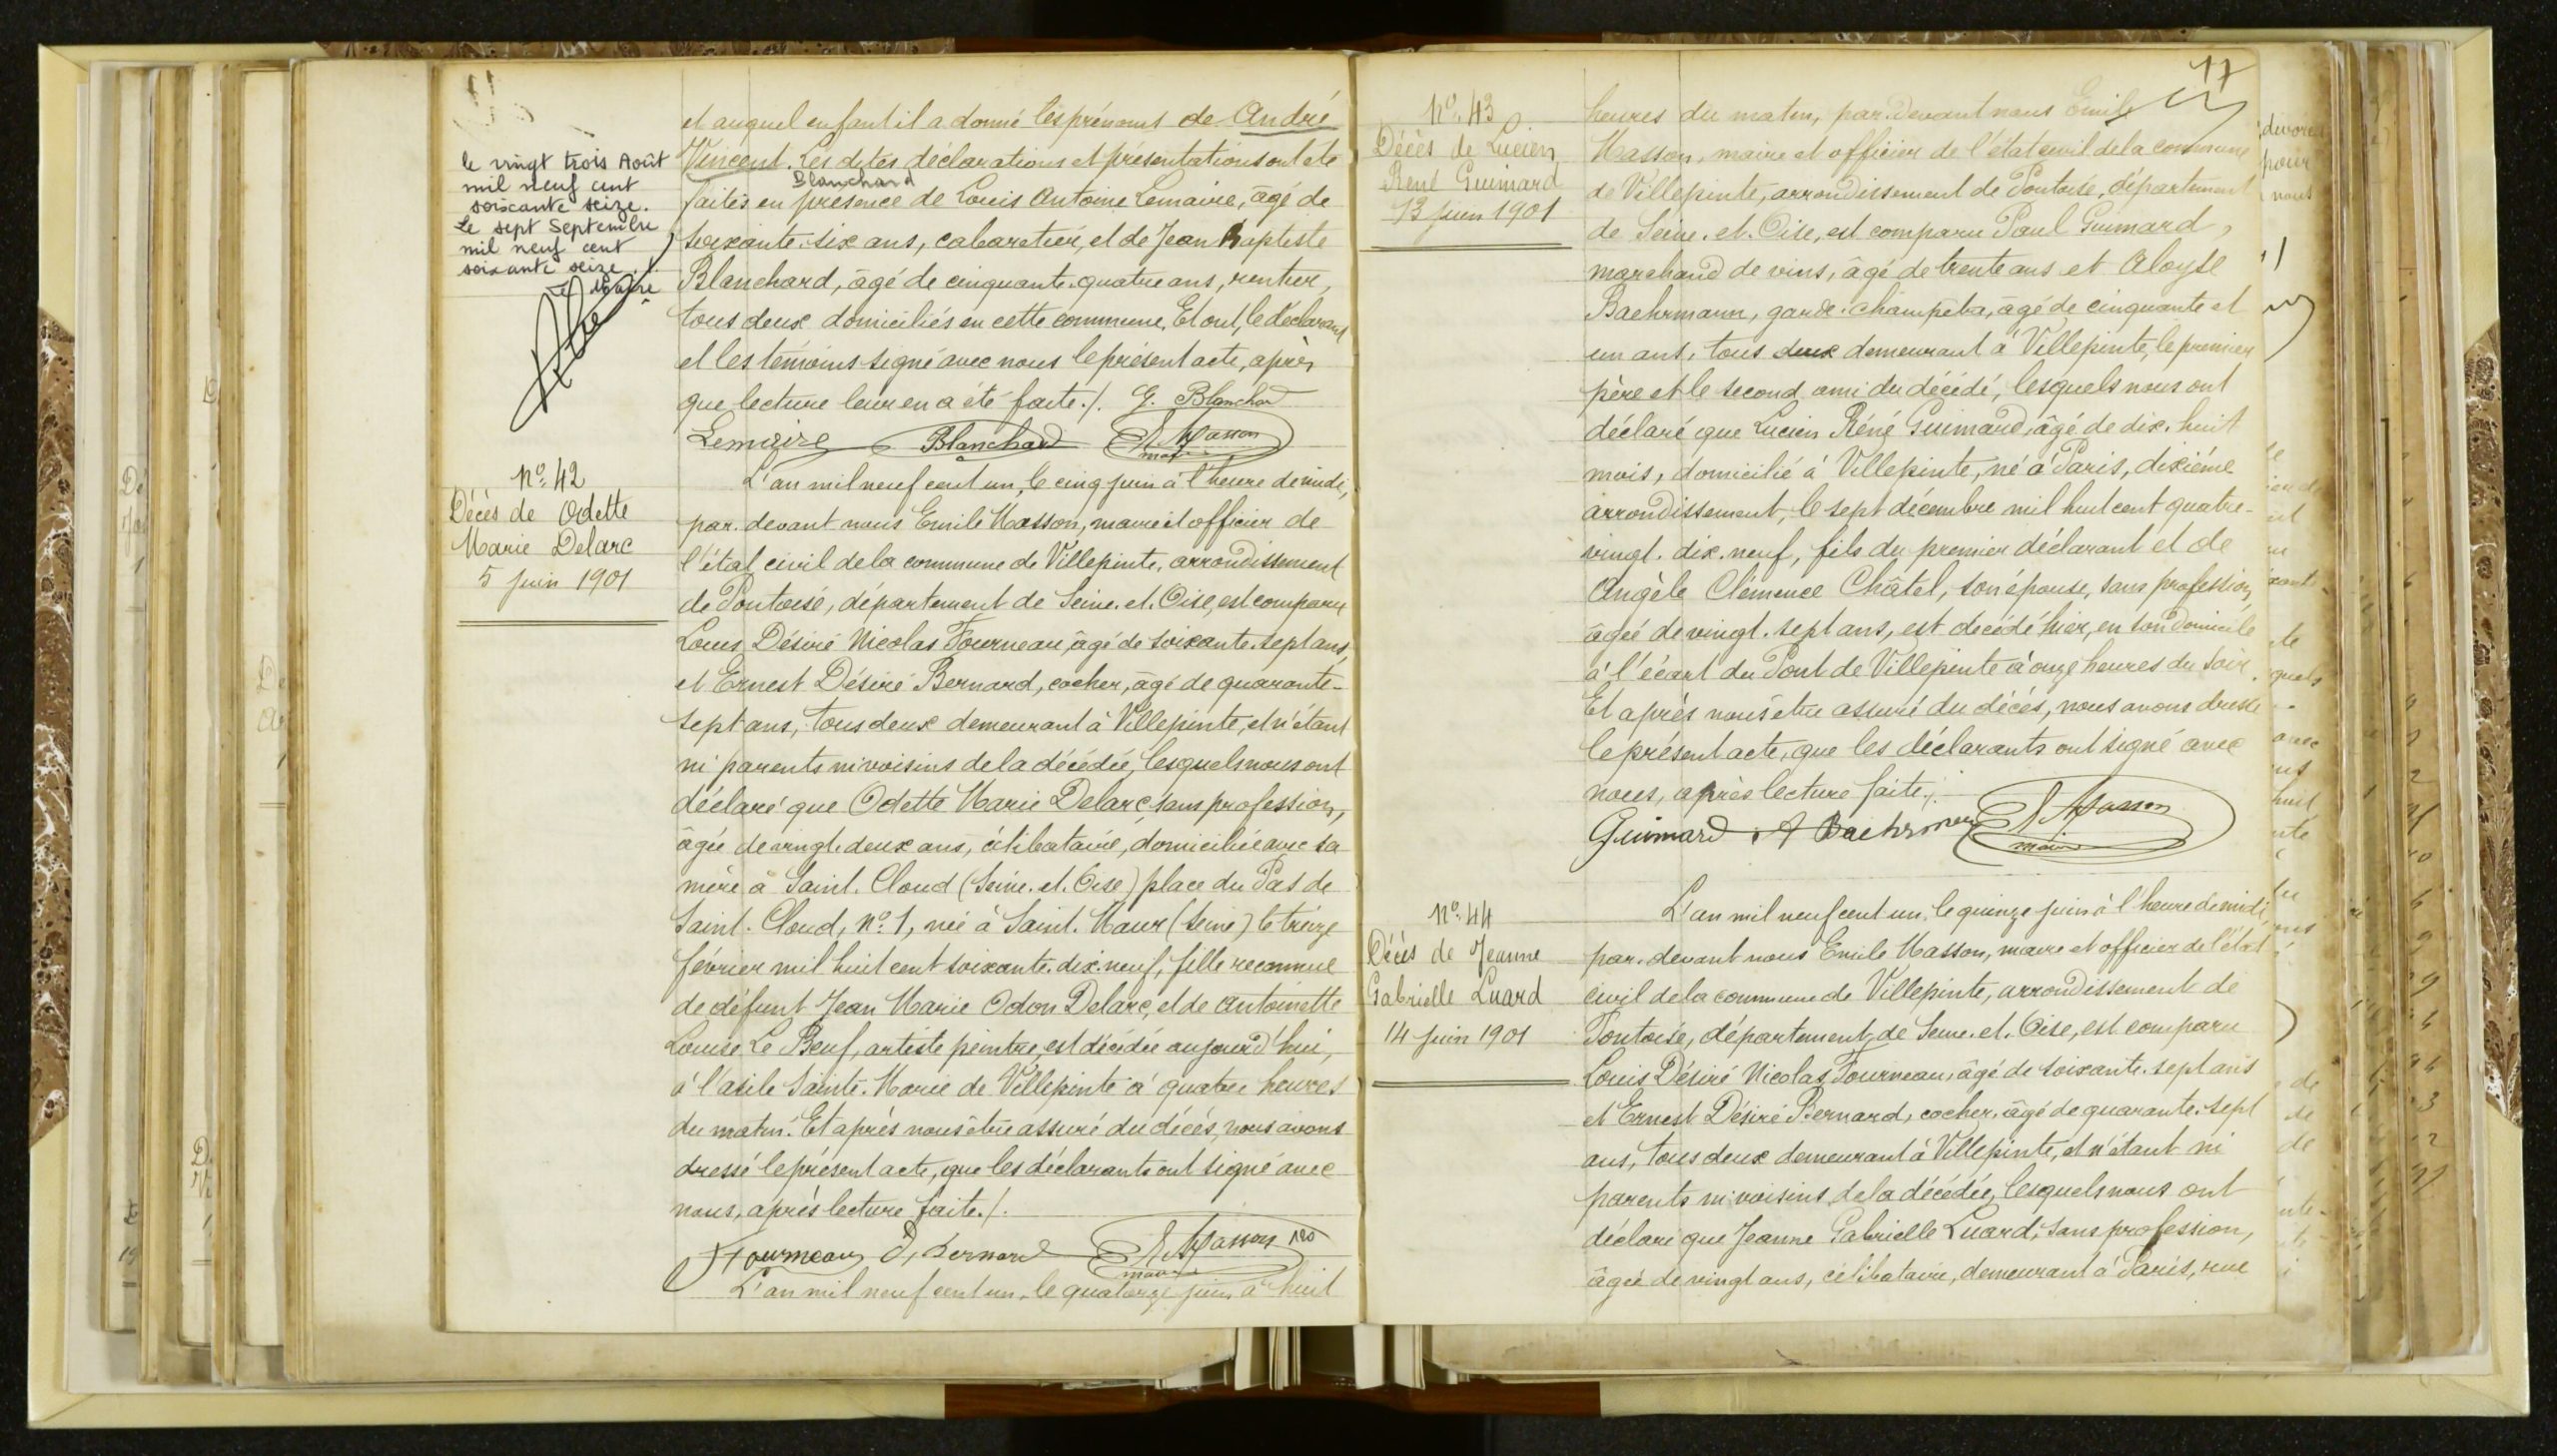 le vingt trois Août
mil neuf cent
soixante seize.
Le sept Septembre
mil neuf cent
soixante seize.
Le Maire
et auquel enfant il a donné les prénoms de André
Vincent. Les dites déclarations et présentations ont été
Blanchard
faites en présence de Louis Antoine Lemaire, âgé de
soixante-six ans, cabaretier, et de Jean Baptiste
Blanchard, âgé de cinquante-quatre ans, rentier,
tous deux domiciliés en cette commune. Et ont, le déclarant
et les témoins signé avec nous le présent acte, après
que lecture leur en a été faite./. G. Blanchard
Lemaire Blanchard E. Masson
maire
No. 42
Décès de Odette
Marie Delarc
5 juin 1901
L'an mil neuf cent un, le cinq juin à l'heure de midi,
par-devant nous Emile Masson, maire et officier de
l'état civil de la commune de Villepinte, arrondissement
de Pontoise, département de Seine-et-Oise, est comparu
Louis Désiré Nicolas Fourneau, âgé de soixante-sept ans,
et Ernest Désiré Bernard, cocher, âgé de quarante-
sept ans, tous deux demeurant à Villepinte, et n'étant
ni parents ni voisins de la décédée, lesquels nous ont
déclaré que Odette Marie Delarc, sans profession,
âgée de vingt-deux ans, célibataire, domiciliée avec sa
mère à Saint-Cloud (Seine-et-Oise) place du Pas de
Saint-Cloud, No. 1, née à Saint-Maur (Seine) le treize
février mil huit cent soixante-dix-neuf, fille reconnue
de défunt Jean Marie Odon Delarc, et de Antoinette
Louise Le Beuf, artiste peintre, est décédée aujourd'hui,
à l'asile Sainte-Marie de Villepinte à quatre heures
du matin. Et après nous être assuré du décès, nous avons
dressé le présent acte, que les déclarants ont signé avec
nous, après lecture faite./.
Fourneau D, Bernard E. Masson
maire
L'an mil neuf cent un, le quatorze juin, à huit
17
No. 43
Décès de Lucien
René Guimard
13 juin 1901
heures du matin, par-devant nous Emile
Masson, maire et officier de l'état civil de la commune
de Villepinte, arrondissement de Pontoise, département
de Seine-et-Oise, est comparu Paul Guimard,
marchand de vins, âgé de trente ans et Aloyse
Baehrmann, garde-champêtre, âgé de cinquante et
un ans, tous deux demeurant à Villepinte, le premier
père et le second ami du décédé, lesquels nous ont
déclaré que Lucien Réné Guimard, âgé de dix-huit
mois, domicilié à Villepinte, né à Paris, dixième
arrondissement, le sept décembre mil huit cent quatre-
vingt-dix-neuf, fils du premier déclarant et de
Angèle Clémence Châtel, son épouse, sans profession,
âgée de vingt-sept ans, est décédé hier, en son domicile
à l'écart du Pont de Villepinte à onze heures du soir.
Et après nous être assuré du décès, nous avons dressé
le présent acte, que les déclarants ont signé avec
nous, après lecture faite./.
Guimard A Baehrmann E. Masson
maire
No. 44
Décès de Jeanne
Gabrielle Luard
14 juin 1901
L'an mil neuf cent un, le quinze juin à l'heure de midi,
par-devant nous Emile Masson, maire et officier de l'état
civil de la commune de Villepinte, arrondissement de
Pontoise, département de Seine-et-Oise, est comparu
Louis Désiré Nicolas Fourneau, âgé de soixante-sept ans
et Ernest Désiré Bernard, cocher, âgé de quarante-sept
ans, tous deux demeurant à Villepinte, et n'étant ni
parents ni voisins de la décédée, lesquels nous ont
déclaré que Jeanne Gabrielle Luard, sans profession,
âgée de vingt ans, célibataire, demeurant à Paris, rue